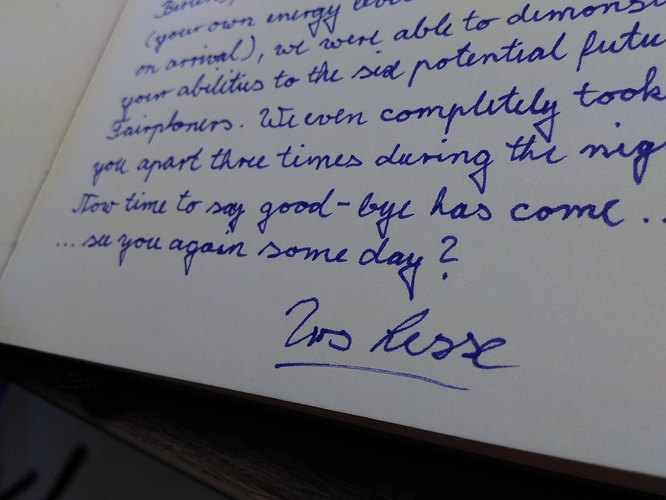 (your own energy level
on arrival), we were able to demons
your abilities to the six potential futu
Fairphoners. We even completely took
you apart three times during the nig
Now time to say good-bye has come ...
... see you again some day?